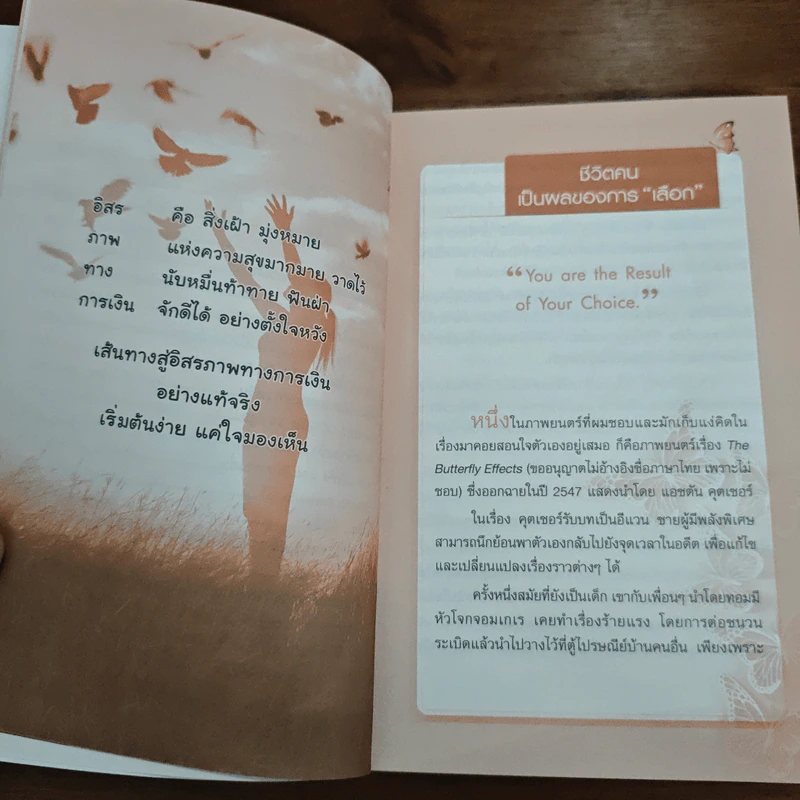 อิสร คือ สิ่งเฝ้า มุ่งหมาย
ภาพ แห่งความสุขมากมาย วาดไว้
ทาง นับหมื่นท้าทาย ฟันฝ่า
การเงิน จักดีได้ อย่างตั้งใจหวัง
เส้นทางสู่อิสรภาพทางการเงิน
อย่างแท้จริง
เริ่มต้นง่าย แค่ใจมองเห็น
ชีวิตคน
เป็นผลของการ “เลือก”
“You are the Result
of Your Choice.”
หนึ่งในภาพยนตร์ที่ผมชอบและมักเก็บแง่คิดใน
เรื่องมาคอยสอนใจตัวเองอยู่เสมอ ก็คือภาพยนตร์เรื่อง The
Butterfly Effects (ขออนุญาตไม่อ้างอิงชื่อภาษาไทย เพราะไม่
ชอบ) ซึ่งออกฉายในปี 2547 แสดงนำโดย แอชตัน คุตเชอร์
ในเรื่อง คุตเชอร์รับบทเป็นอีแวน ชายผู้มีพลังพิเศษ
สามารถนึกย้อนพาตัวเองกลับไปยังจุดเวลาในอดีต เพื่อแก้ไข
และเปลี่ยนแปลงเรื่องราวต่างๆ ได้
ครั้งหนึ่งสมัยที่ยังเป็นเด็ก เขากับเพื่อนๆ นำโดยทอมมี
หัวโจกจอมเกเร เคยทำเรื่องร้ายแรง โดยการต่อชนวน
ระเบิดแล้วนำไปวางไว้ที่ตู้ไปรษณีย์บ้านคนอื่น เพียงเพราะ